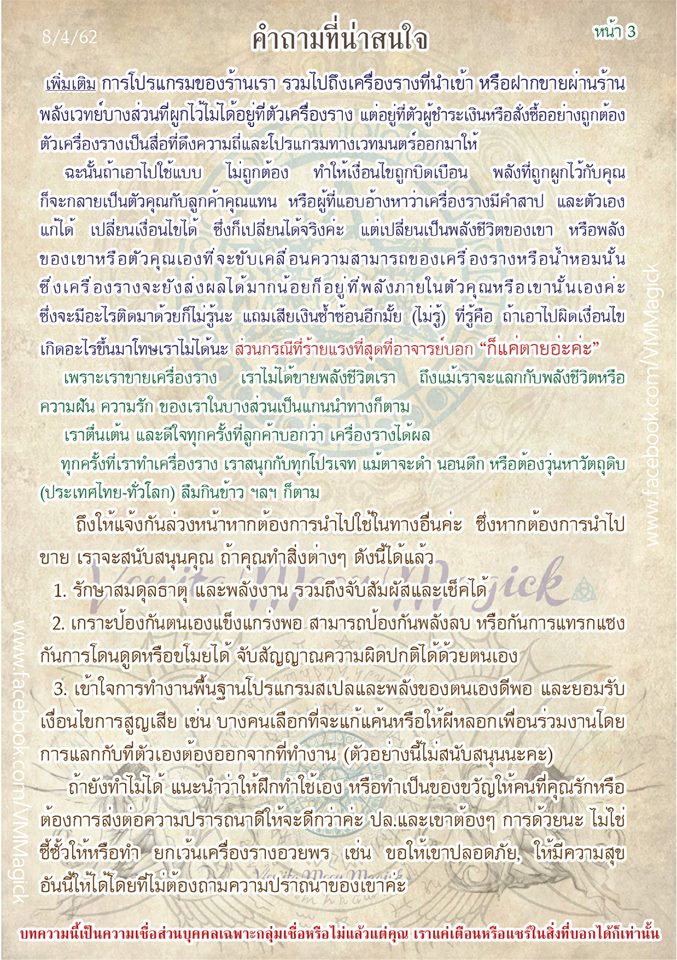 8/4/62
คำถามที่น่าสนใจ
หน้า 3
เพิ่มเติม การโปรแกรมของร้านเรา รวมไปถึงเครื่องรางที่นำเข้า หรือฝากขายผ่านร้าน
พลังเวทย์บางส่วนที่ผูกไว้ไม่ได้อยู่ที่ตัวเครื่องราง แต่อยู่ที่ตัวผู้ชำระเงินหรือสั่งซื้ออย่างถูกต้อง
ตัวเครื่องรางเป็นสื่อที่ดึงความถี่และโปรแกรมทางเวทมนตร์ออกมาให้
ฉะนั้นถ้าเอาไปใช้แบบ ไม่ถูกต้อง ทำให้เงื่อนไขถูกบิดเบือน พลังที่ถูกผูกไว้กับคุณ
ก็จะกลายเป็นตัวคุณกับลูกค้าคุณแทน หรือผู้ที่แอบอ้างหาว่าเครื่องรางมีคำสาป และตัวเอง
แก้ได้ เปลี่ยนเงื่อนไขได้ ซึ่งก็เปลี่ยนได้จริงค่ะ แต่เปลี่ยนเป็นพลังชีวิตของเขา หรือพลัง
ของเขาหรือตัวคุณเองที่จะขับเคลื่อนความสามารถของเครื่องรางหรือน้ำหอมนั้น
ซึ่งเครื่องรางจะยังส่งผลได้มากน้อยก็อยู่ที่พลังภายในตัวคุณหรือเขานั้นเองค่ะ
ซึ่งจะมีอะไรติดมาด้วยก็ไม่รู้นะ แถมเสียเงินซ้ำซ้อนอีกมั้ย (ไม่รู้) ที่รู้คือ ถ้าเอาไปผิดเงื่อนไข
เกิดอะไรขึ้นมาโทษเราไม่ได้นะ ส่วนกรณีที่ร้ายแรงที่สุดที่อาจารย์บอก "ก็แค่ตายอ่ะค่ะ"
เพราะเราขายเครื่องราง เราไม่ได้ขายพลังชีวิตเรา ถึงแม้เราจะแลกกับพลังชีวิตหรือ
ความฝัน ความรัก ของเราในบางส่วนเป็นแกนนำทางก็ตาม
เราตื่นเต้น และดีใจทุกครั้งที่ลูกค้าบอกว่า เครื่องรางได้ผล
ทุกครั้งที่เราทำเครื่องราง เราสนุกกับทุกโปรเจท แม้ตาจะดำ นอนดึก หรือต้องวุ่นหาวัตถุดิบ
(ประเทศไทย-ทั่วโลก) ลืมกินข้าว ฯลฯ ก็ตาม
ถึงให้แจ้งกันล่วงหน้าหากต้องการนำไปใช้ในทางอื่นค่ะ ซึ่งหากต้องการนำไป
ขาย เราจะสนับสนุนคุณ ถ้าคุณทำสิ่งต่างๆ ดังนี้ได้แล้ว
1. รักษาสมดุลธาตุ และพลังงาน รวมถึงจับสัมผัสและเช็คได้
2. เกราะป้องกันตนเองแข็งแกร่งพอ สามารถป้องกันพลังลบ หรือกันการแทรกแซง
กันการโดนดูดหรือขโมยได้ จับสัญญาณความผิดปกติได้ด้วยตนเอง
3. เข้าใจการทำงานพื้นฐานโปรแกรมสเปลและพลังของตนเองดีพอ และยอมรับ
เงื่อนไขการสูญเสีย เช่น บางคนเลือกที่จะแก้แค้นหรือให้ผีหลอกเพื่อนร่วมงานโดย
การแลกกับที่ตัวเองต้องออกจากที่ทำงาน (ตัวอย่างนี้ไม่สนับสนุนนะคะ)
ถ้ายังทำไม่ได้ แนะนำว่าให้ฝึกทำใช้เอง หรือทำเป็นของขวัญให้คนที่คุณรักหรือ
ต้องการส่งต่อความปรารถนาดีให้จะดีกว่าค่ะ ปล.และเขาต้องๆ การด้วยนะ ไม่ใช่
ซี้ซั้วให้หรือทำ ยกเว้นเครื่องรางอวยพร เช่น ขอให้เขาปลอดภัย, ให้มีความสุข
อันนี้ให้ได้โดยที่ไม่ต้องถามความปราถนาของเขาค่ะ
บทความนี้เป็นความเชื่อส่วนบุคคลเฉพาะกลุ่มเชื่อหรือไม่แล้วแต่คุณ เราแค่เตือนหรือแชร์ในสิ่งที่บอกได้ก็เท่านั้น
www.facebook.com/VMMagick
www.facebook.com/VMMagick